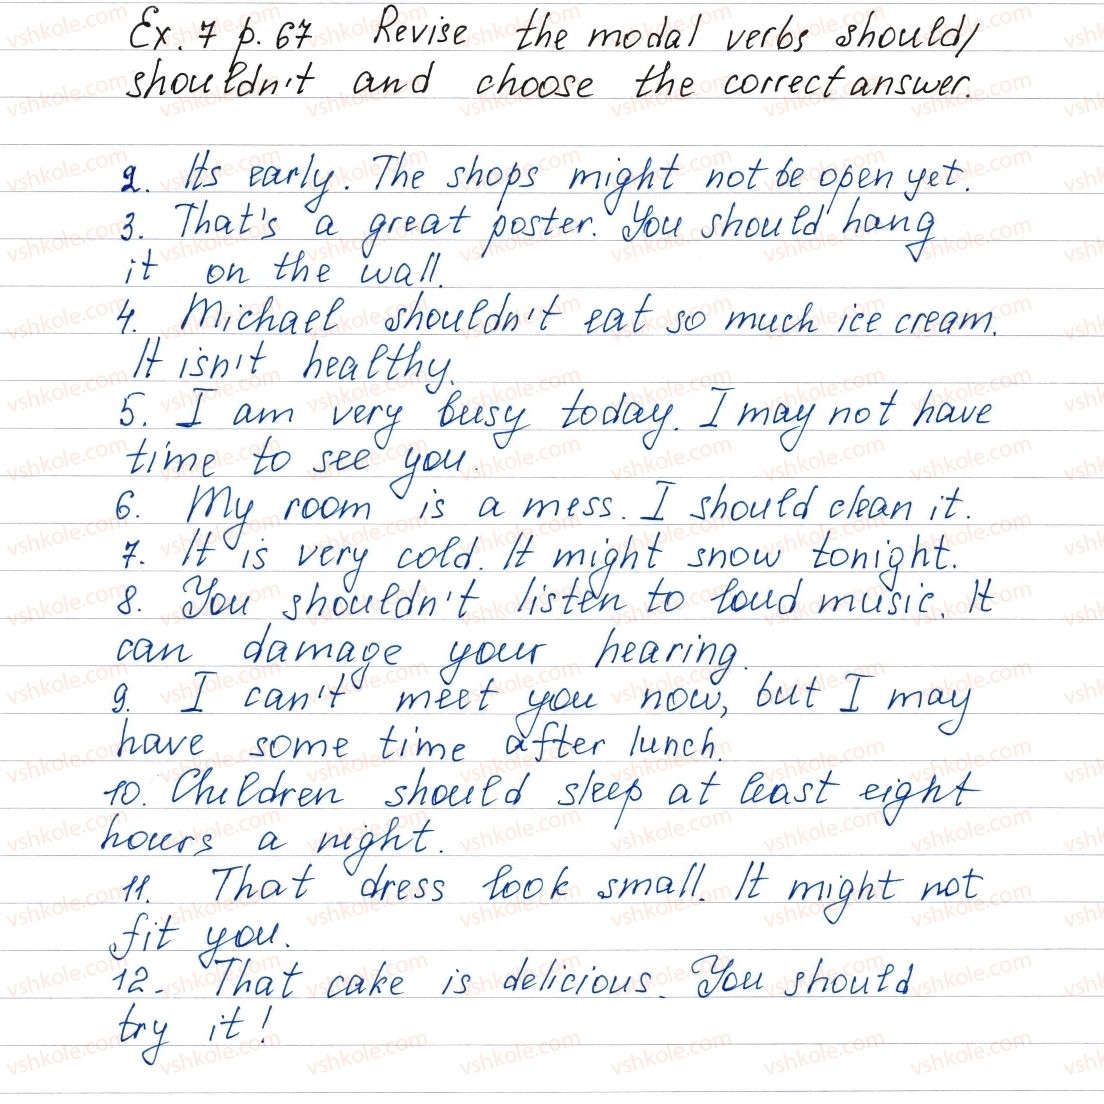 Ex. 7 p. 67 Revise the modal verbs should/
shouldn't and choose the correct answer.
2. Its early. The shops might not be open yet.
3. That's a great poster. You should hang
it on the wall.
4. Michael shouldn't eat so much ice cream.
It isn't healthy.
5. I am very busy today. I may not have
time to see you.
6. My room is a mess. I should clean it.
7. It is very cold. It might snow tonight.
8. You shouldn't listen to loud music. It
can damage your hearing.
9. I can't meet you now, but I may
have some time after lunch.
10. Children should sleep at least eight
hours a night.
11. That dress look small. It might not
fit you.
12. That cake is delicious. You should
try it!